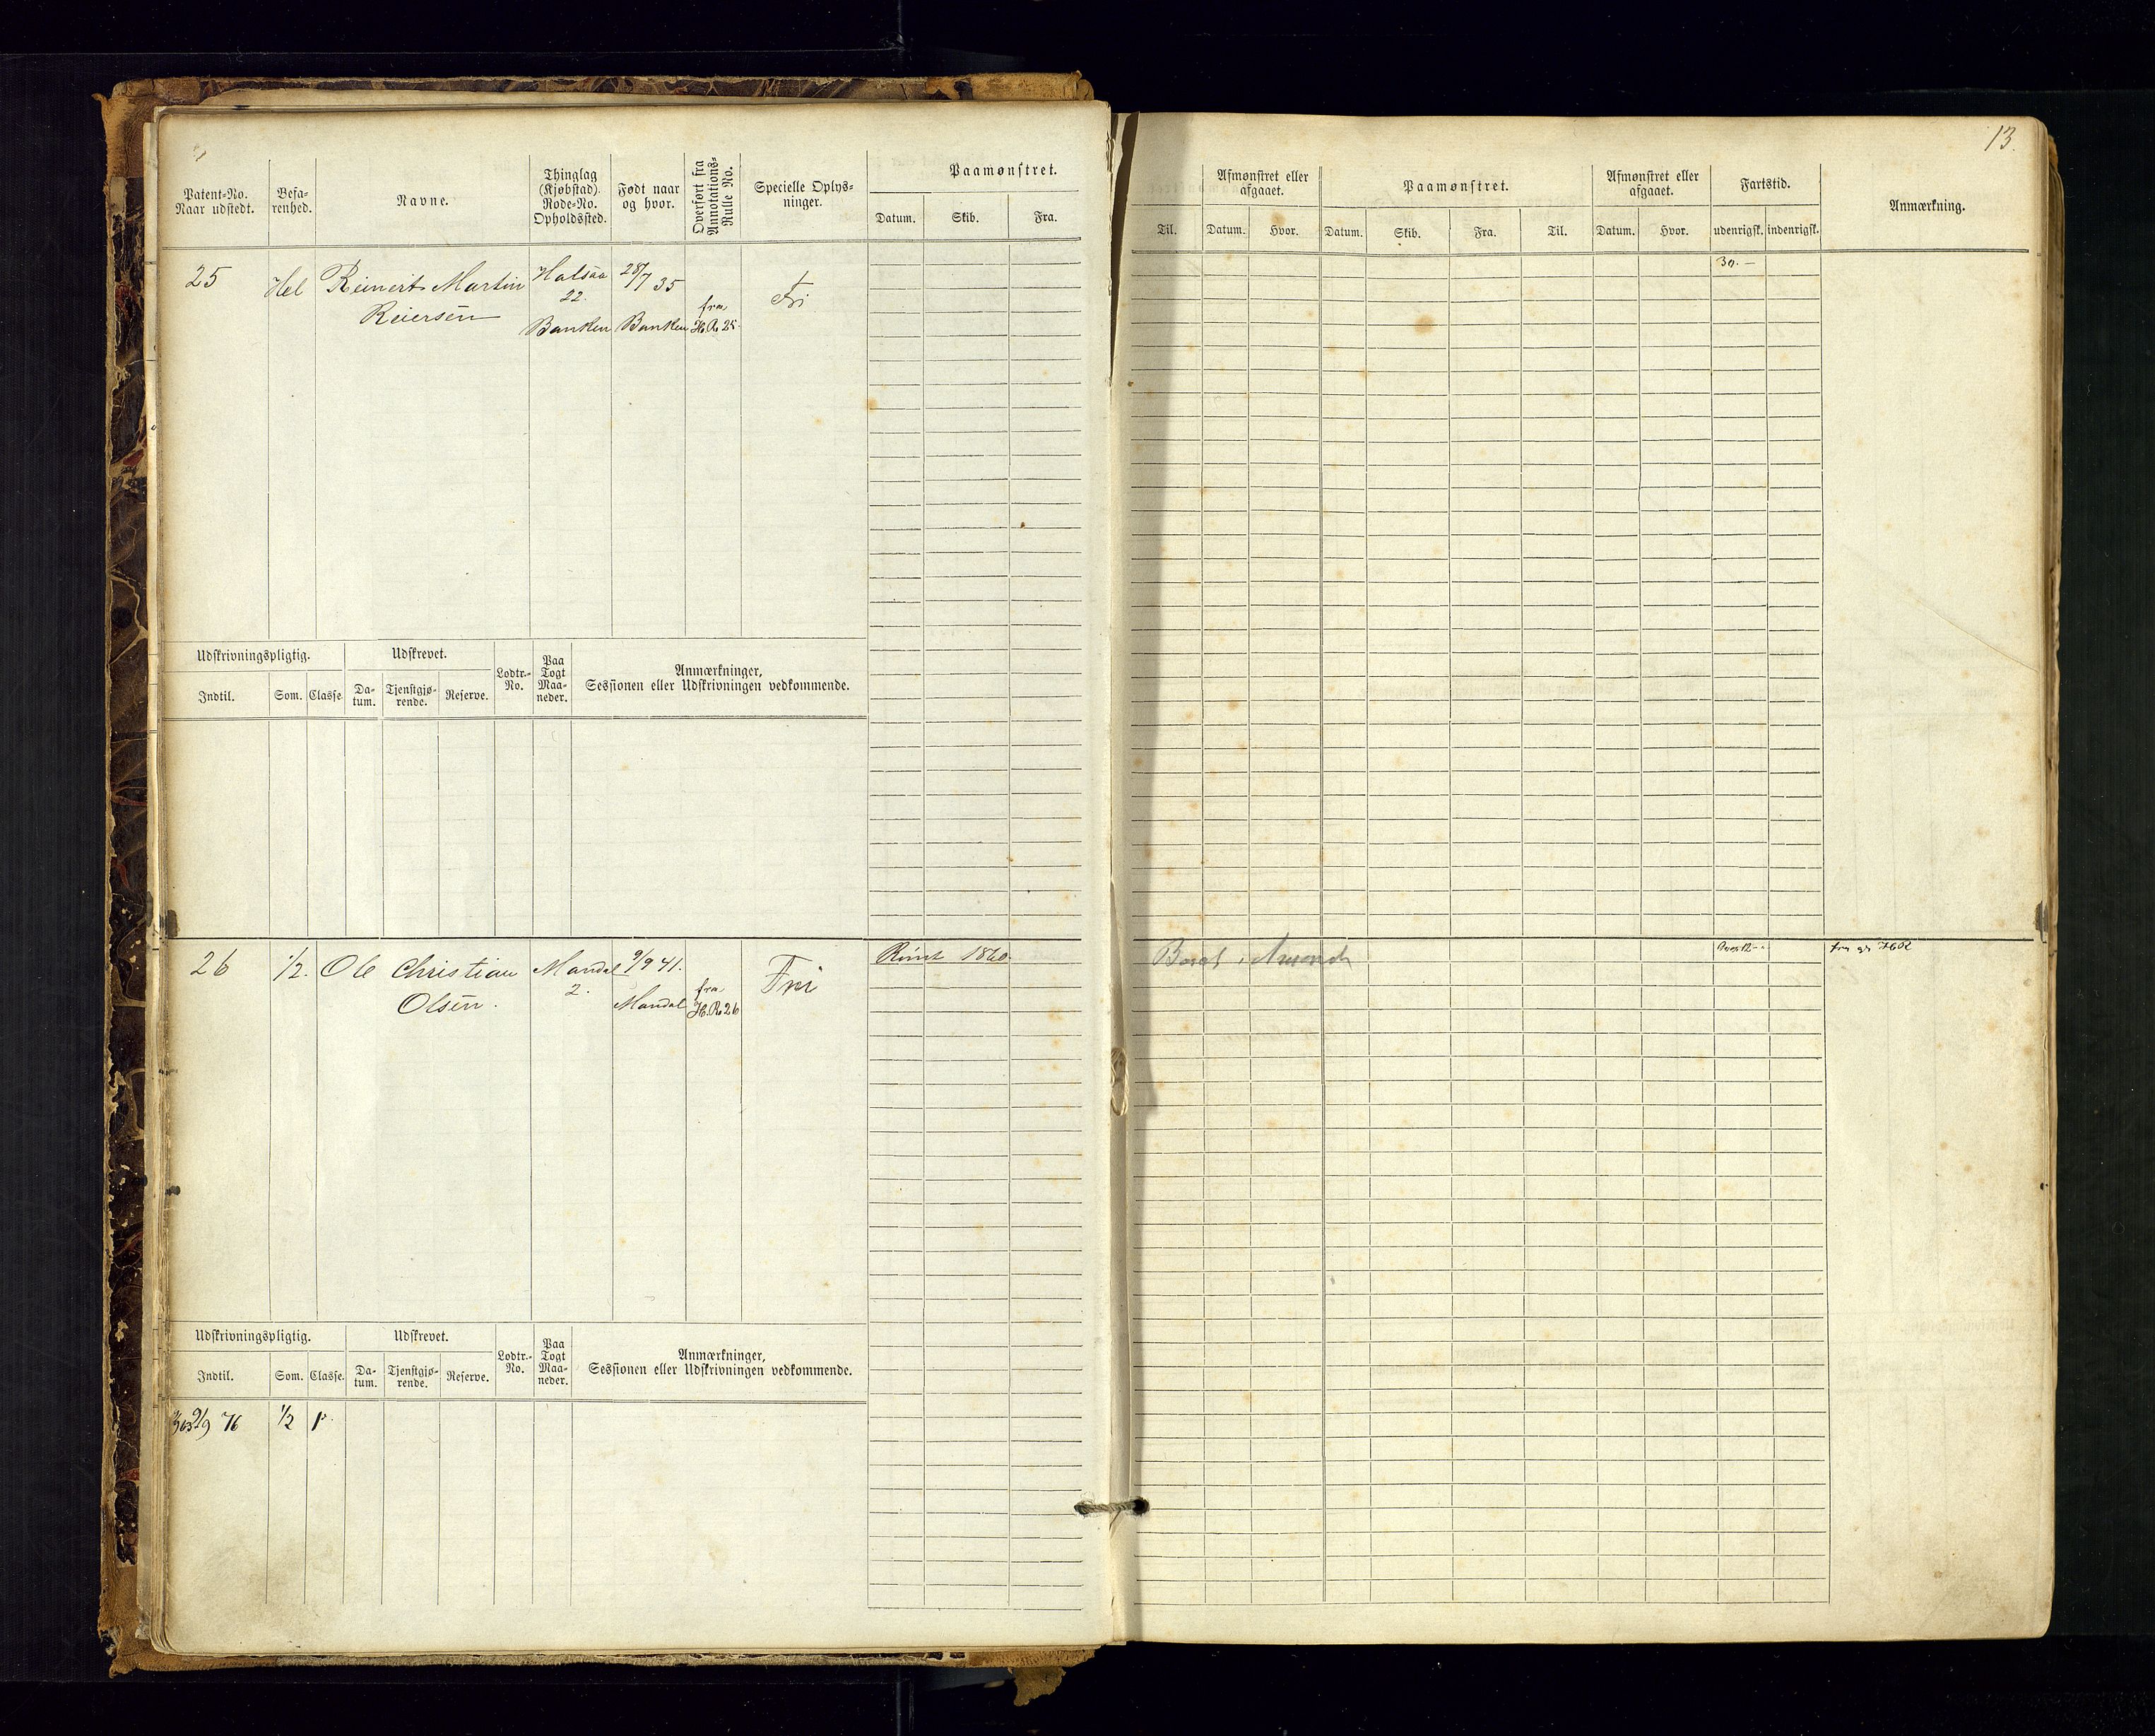 13.
Patent-No.
Naar udstedt.
Befa-
renhed.
Navne.
Thinglag
(Kjøbstad).
Rode-No.
Opholdssted.
Født naar
og hvor.
Overført fra
Annotations-
Rulle No.
Specielle Oplys-
ninger.
Paamønstret.
Datum. Skib. Fra.
Til.
Afmønstret eller
afgaaet.
Datum. Hvor.
Paamønstret.
Datum. Skib. Fra. Til.
Afmønstret eller
afgaaet.
Datum. Hvor.
Fartstid.
udenrigsk. indenrigsk.
Anmærkning.
25 Hel Reinert Martin Halsaa 28/7 35 Fri 30.—
Reiersen 22. fra
Banken Banken H.R. 25
Udskrivningspligtig. Udskrevet. Lodtr.-
No. Paa
Togt
Maa-
neder. Anmærkninger,
Sessionen eller Udskrivningen vedkommende.
Indtil. Som. Classe. Da-
tum. Tjenstgjø-
rende. Reserve.
26 1/2. Ole Christian Mandal 9/9 41. Fri 1860.
Olsen. 2. fra
Mandal H.R. 26
Udskrivningspligtig. Udskrevet. Lodtr.-
No. Paa
Togt
Maa-
neder. Anmærkninger,
Sessionen eller Udskrivningen vedkommende.
Indtil. Som. Classe. Da-
tum. Tjenstgjø-
rende. Reserve.
9/9 76 1/2